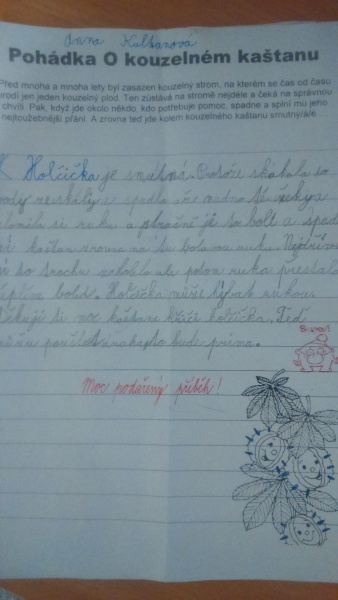 Anna Kulhanová
Pohádka O kouzelném kaštanu
Před mnoha a mnoha lety byl zasazen kouzelný strom, na kterém se čas od času
urodí jen jeden kouzelný plod. Ten zůstává na stromě nejdéle a čeká na správnou
chvíli. Pak, když jde okolo někdo, kdo potřebuje pomoc, spadne a splní mu jeho
nejtoužebnější přání. A zrovna teď jde kolem kouzelného kaštanu smutný/á/é...
Holčička je smutná. Protože skákala do
vody ze skály a spadla
zlomila si ruku a strašně jí to bolí a spadl
kaštan zrovna na tu bolavou ruku. Nejdřív
to trochu zabolelo ale potom ruka přestala
úplně bolet. Holčička může hýbat rukou.
Děkuju ti moc kaštane křičí holčička. Teď
můžu to bude prima.
Super!
Moc podařený příběh!